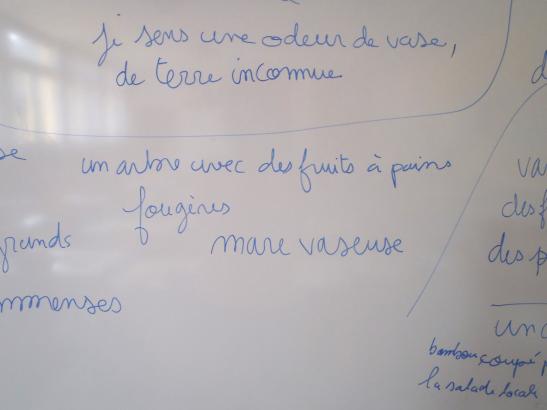 Je sens une odeur de vase,
de terre inconnue
se
un arbre avec des fruits à pains
fougères
grands
mare vaseuse
mmenses
d
va
des f
des p
un
bambou coupé p
la salade locale